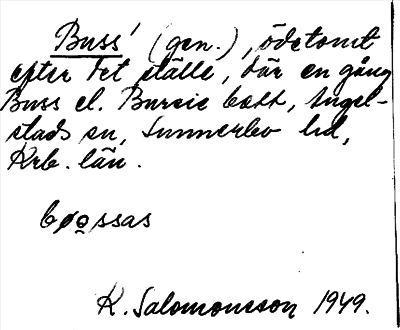 Buss' (gen.), ödetomt
efter det ställe, där en gång
Buss el. Bursie bott, Angel-
stads sn, Sunnerbo hd,
Krb. län.
bøo̲ssas
K. Salomonsson 1949.